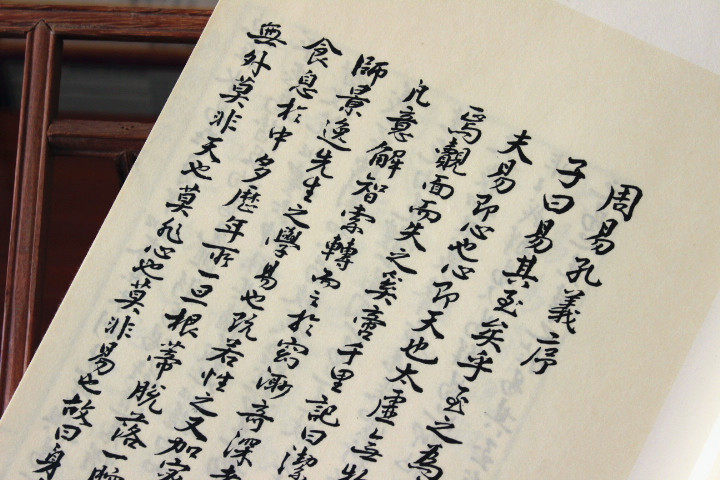 周易孔義序
子曰易其至矣乎至之為
夫易即心也心即天也太虛無物
焉覿面而失之奚啻千里記曰潔
凡意解智索轉而之於窈渺奇深
師景逸先生之學易也既若性之又加密
食息於中多歷年所一旦根蒂脫落一
無外莫非天也莫非心也莫非易也故曰身